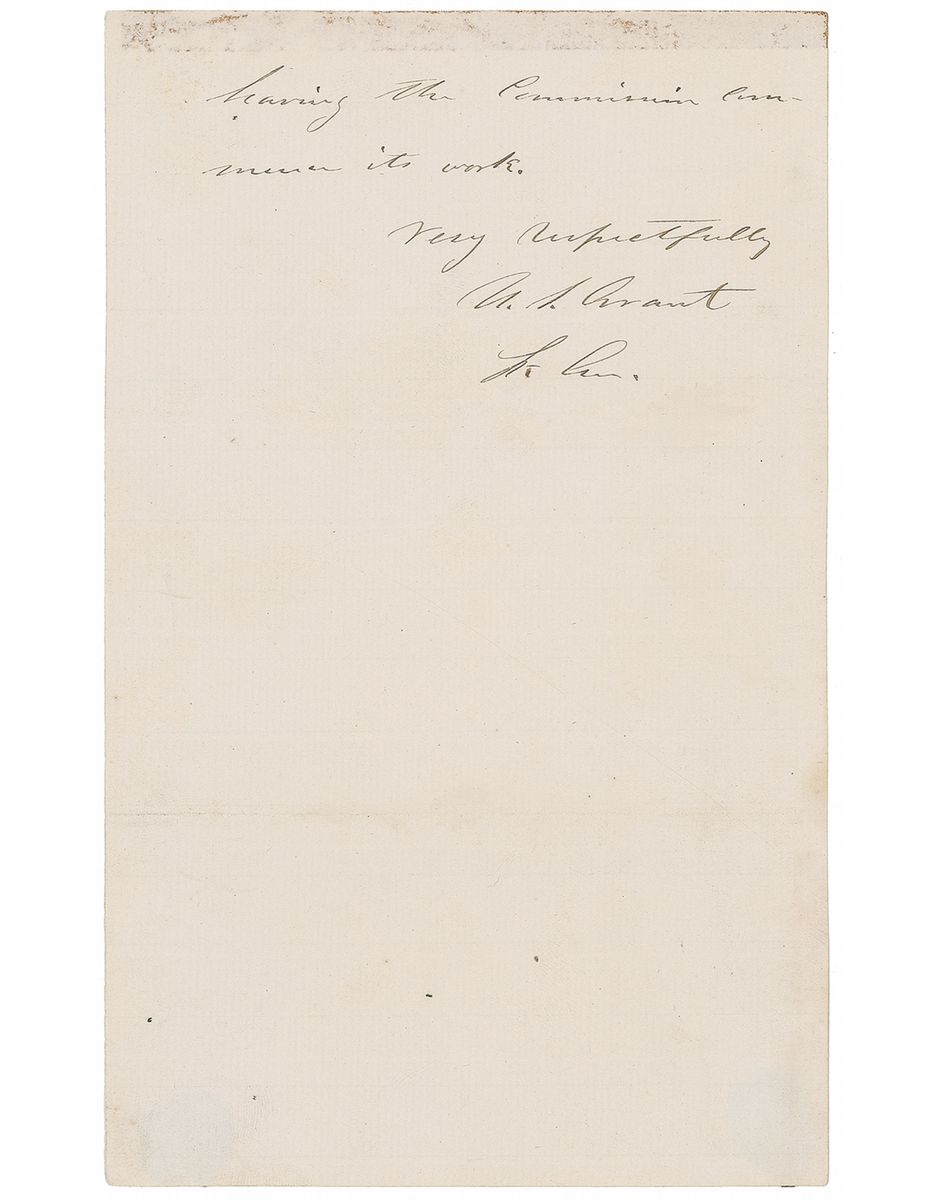 having the Commission com-
mence its work.
Very respectfully
U. S. Grant
Lt. Gen.